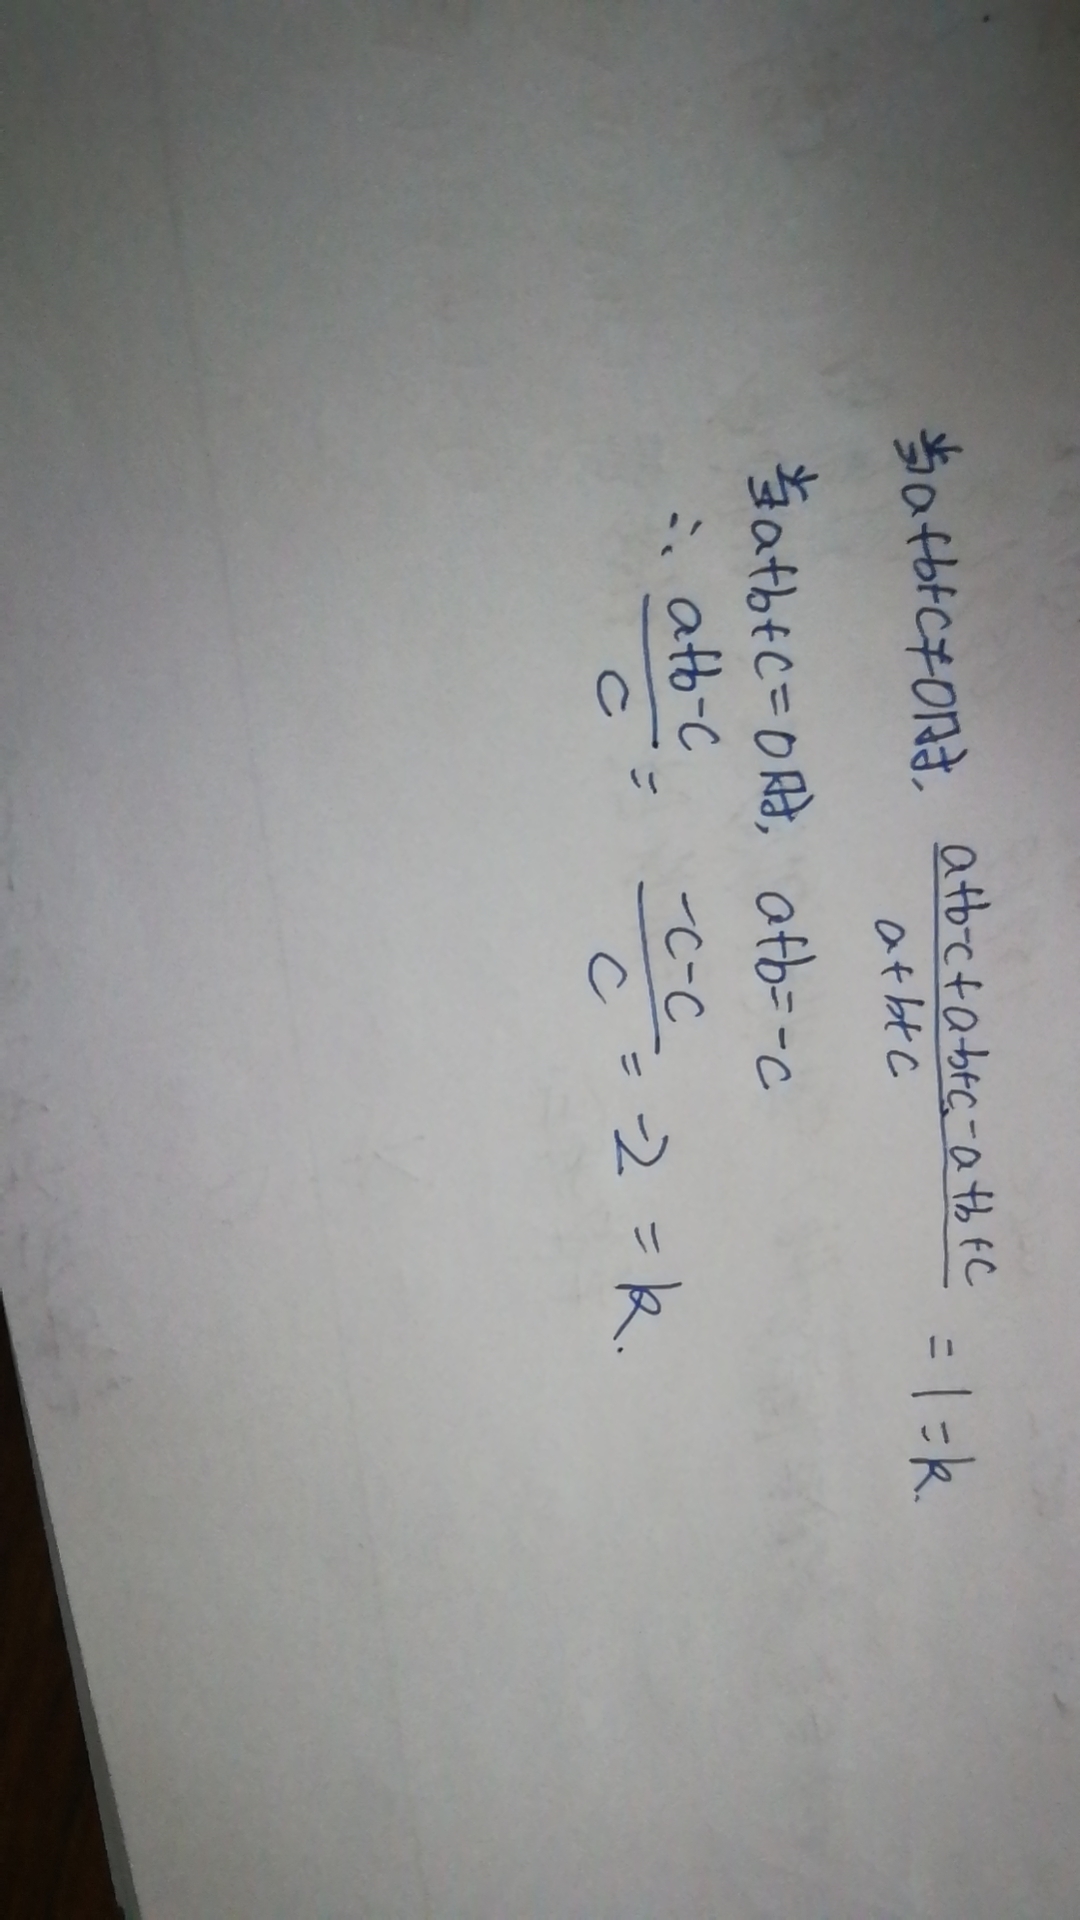 当a+b+c≠0时, a+b-c+a-b+c-a+b+c / a+b+c = 1 = k.
当a+b+c=0时, a+b=-c
∴ a+b-c / c = -c-c / c = -2 = k.